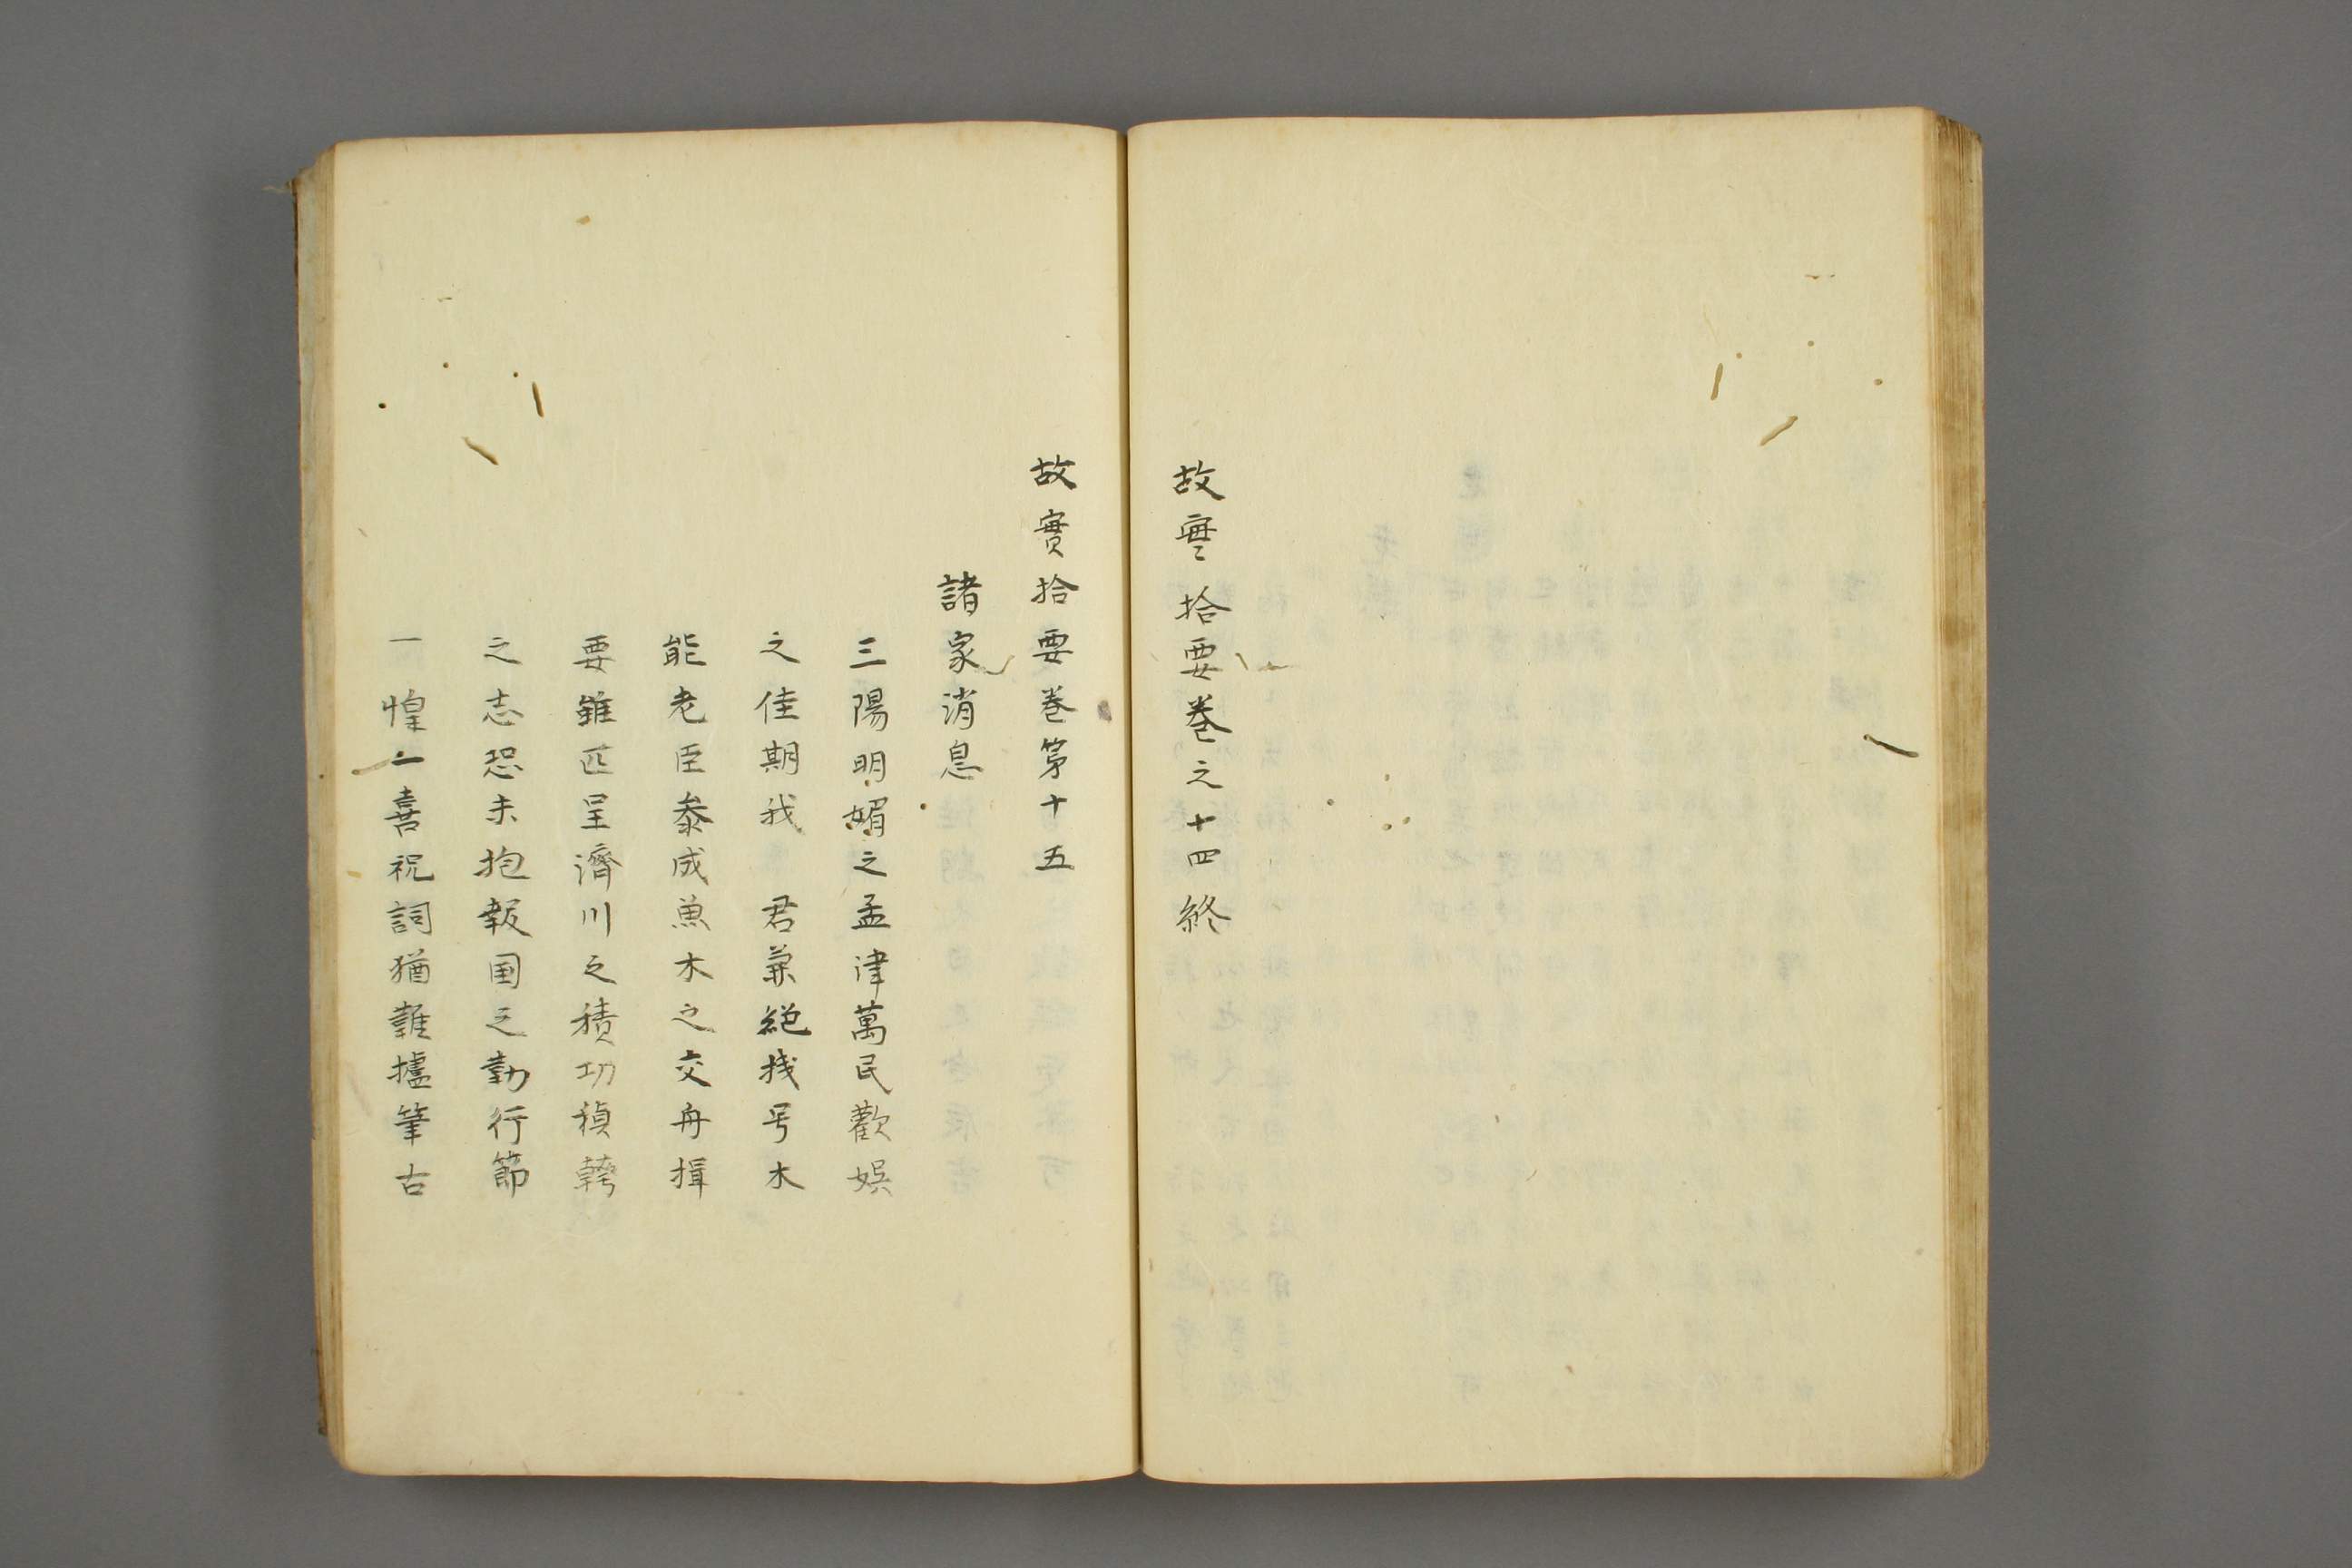 故實拾要巻之十四終
故實拾要巻第十五
諸家消息
三陽明媚之孟津萬民歡娯
之佳期我 君兼絶残号木
能老臣参成魚木之交舟揖
要雖匹呈濟川之積功
之志恐未抱報国之勤行節
一惶一喜祝詞猶難攄筆古